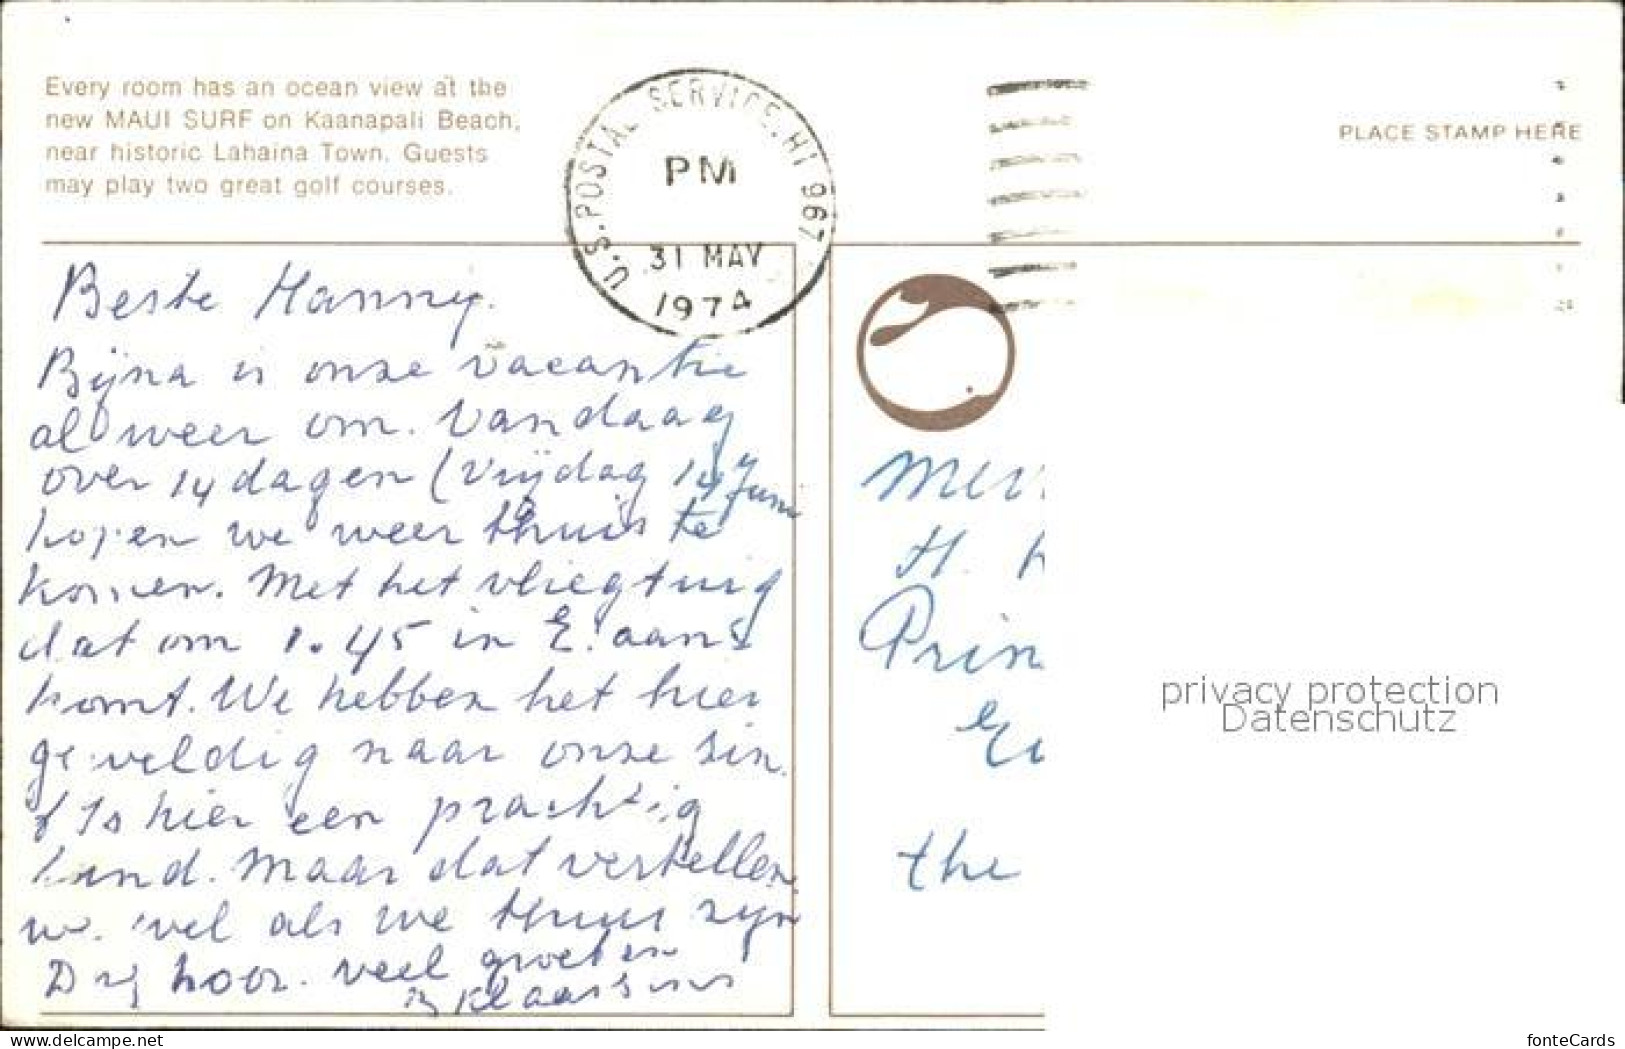 Every room has an ocean view at the
new MAUI SURF on Kaanapali Beach,
near historic Lahaina Town. Guests
may play two great golf courses.
U.S. POSTAL SERVICE, HI 967
PM
31 MAY
1974
PLACE STAMP HERE
Beste Hanny.
Bijna is onze vacantie
al weer om. Vandaag
over 14 dagen (Vrijdag 14 Juni
hopen we weer thuis te
komen. Met het vliegtuig
dat om 1.45 in E. aan
komt. We hebben het hier
geweldig naar onze zin.
't Is hier een prachtig
land. Maar dat vertellen
we wel als we thuis zijn
Dag hoor. Veel groeten
Klaassens
H.
Prin
the
privacy protection
Datenschutz
www.delcampe.net
fonteCards